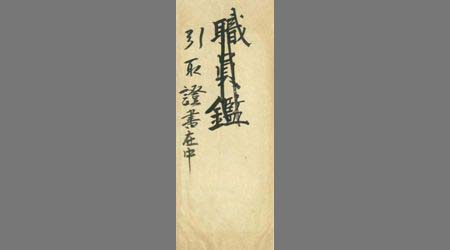 職員鑑
引取證書在中